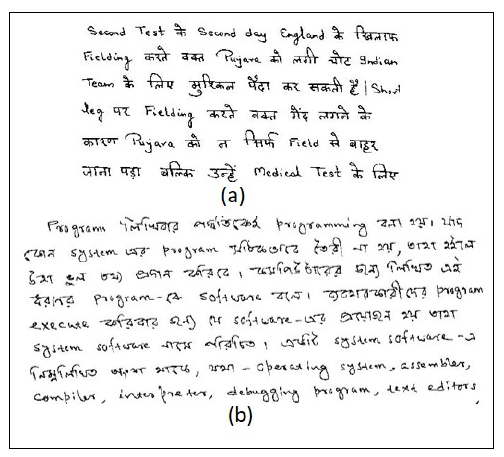 Second Test के Second day England के खिलाफ
Fielding करते वक्त Pujara को लगी चोट Indian
Team के लिए मुश्किल पैदा कर सकती है | Short
leg पर Fielding करते वक्त गेंद लगने के
कारण Pujara को न सिर्फ Field से बाहर
जाना पड़ा बल्कि उन्हें Medical Test के लिए
(a)
Program লিখিবার পদ্ধতিকেই programming বলা হয়। যদি
কোন system এর program সঠিকভাবে তৈরী না হয়, তাহা হইলে
উহা ভুল তথ্য প্রদান করিবে। কম্পিউটারের জন্য লিখিত এই
ধরনের program-কে software বলে। ব্যবহারকারীদের program
execute করিবার জন্য যে software-এর প্রয়োজন হয় তাহা
system software নামে পরিচিত। একটি system software-এ
নিম্নলিখিত অংশ থাকে, যথা - operating system, assembler,
compiler, interpreter, debugging program, text editors,
(b)